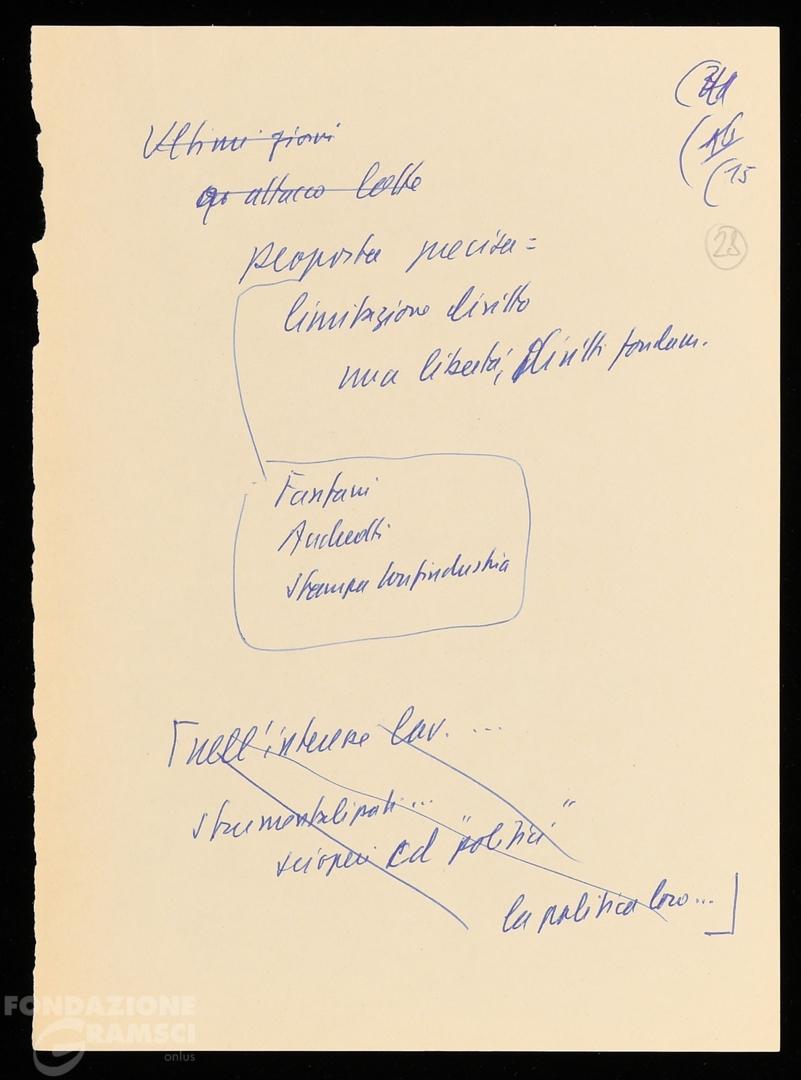 Ultimi giorni
attacco lotte
proposta precisa =
limitazione diritto
una libertà, diritti fondam.
Fanfani
Andreotti
Stampa Confindustria
nell'interesse lav. ...
strumentalizzati...
scioperi cd "politici"
la politica loro...]
(15
28
FONDAZIONE
GRAMSCI
onlus